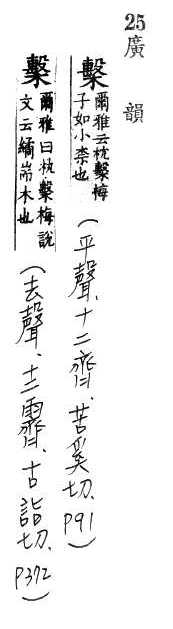 25 廣韻
檕 爾雅云杭檕梅
子如小柰也
(平聲、十二齊、苦奚切、P91)
檕 爾雅曰杭檕梅說
文云繘耑木也
(去聲、十二霽、古詣切、P372)